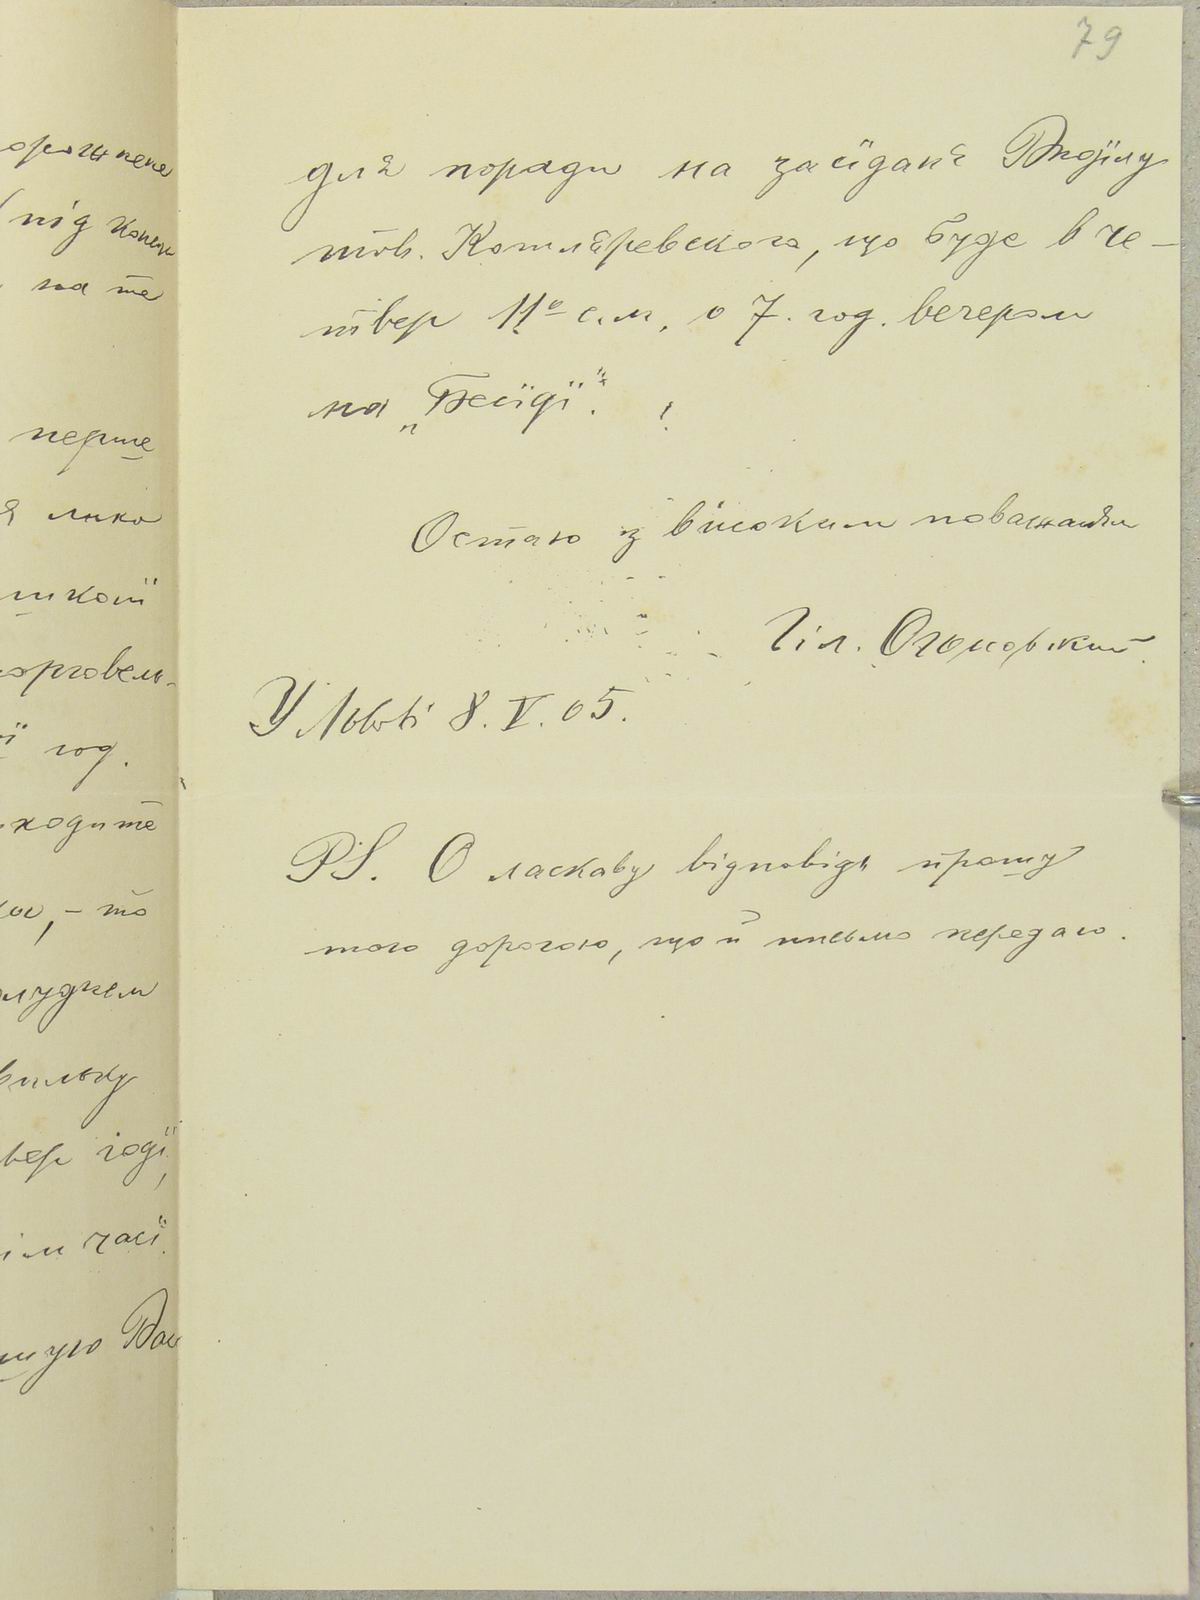 79
для поради на засїданє Видїлу
тов. Котляревского, що буде в че-
твер 11º с.м. о 7. год. вечером
на „Бесїдї“.
Остаю з високим поважанєм
Гіл. Огоновский.
У Львові 8.V.05.
PS. О ласкаву відповідь прошу
тою дорогою, що й письмо передаю.
під конец
на те
перше
лико
год.
ходите
то
вер годї,
часї.